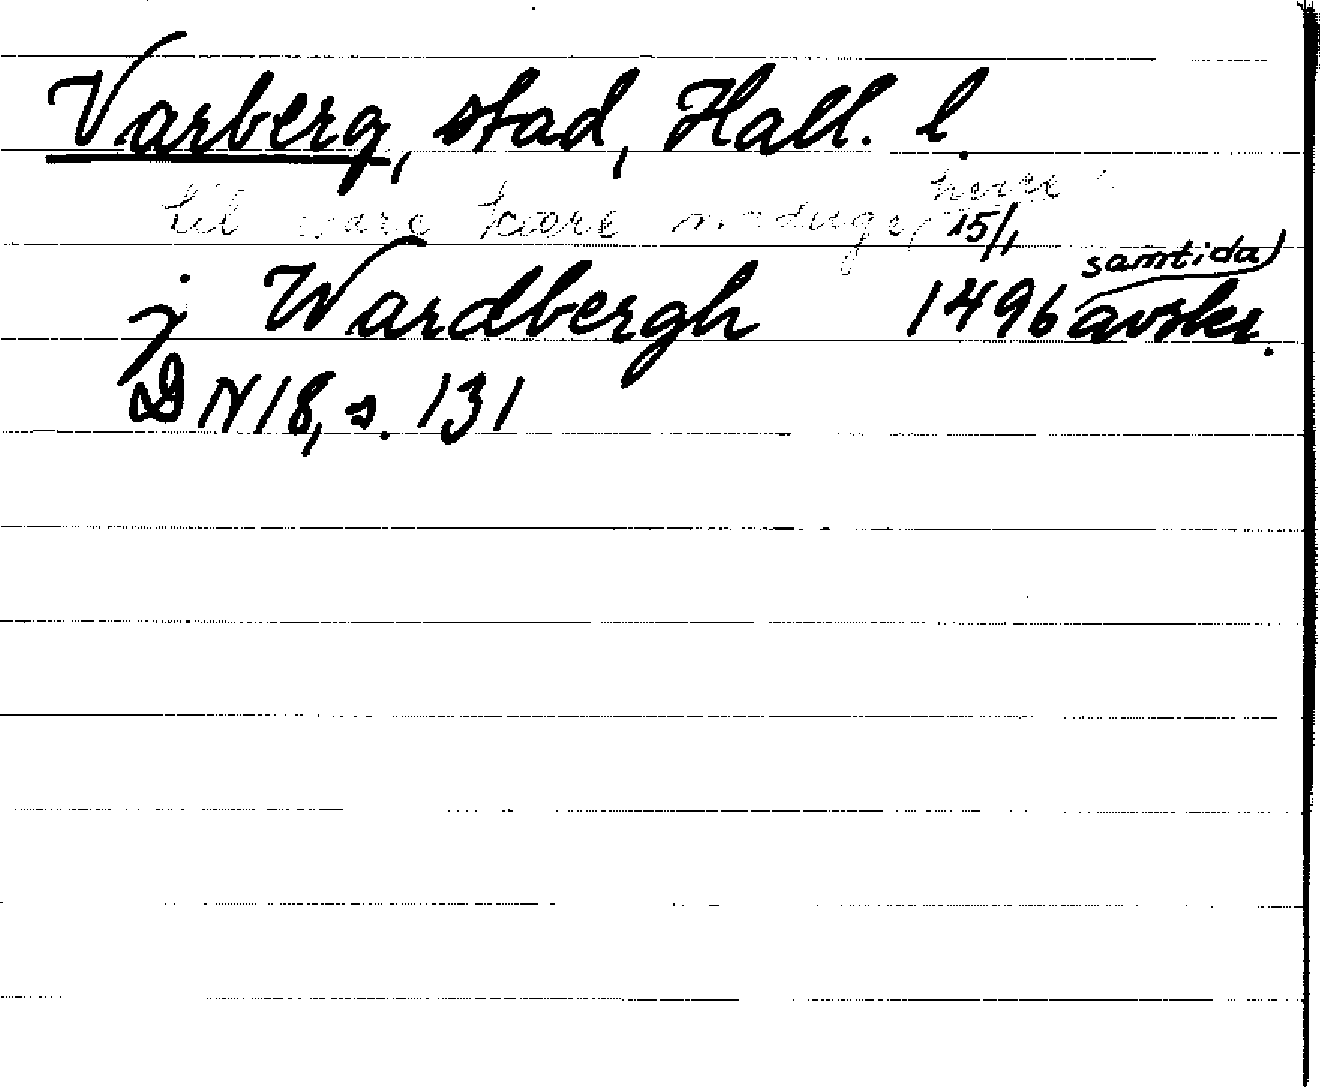 Varberg, stad, Hall. l.
til ware kære naduge herre
j Wardbergh 15/1 1496 samtida avskr.
DN 18, s. 131